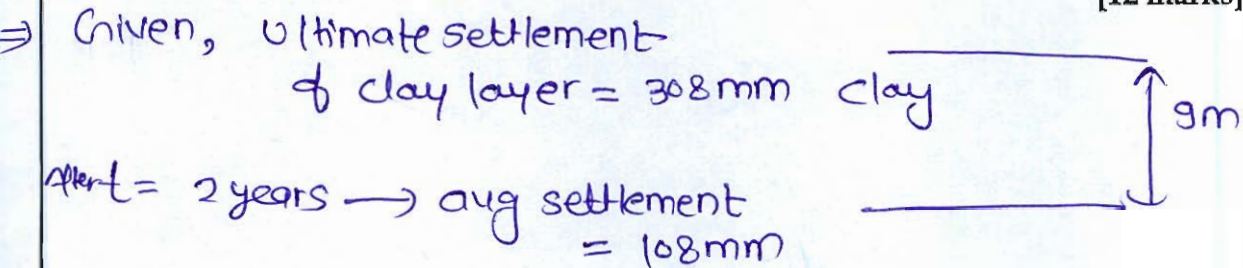 [12 marks]
⇒ Given, Ultimate settlement
of clay layer = 308mm clay
9m
After t = 2 years → avg settlement
= 108mm